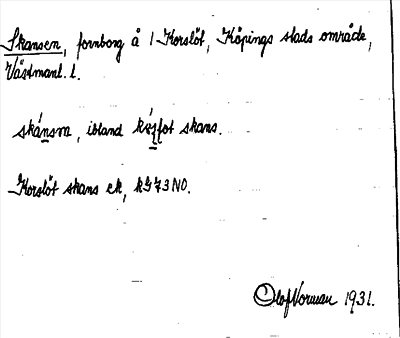 Skansen, fornborg å 1 Korslöt, Köpings stads område,
Västmanl. l.
skánsna, ibland skans.
Korslöt skans ek, kG73NO.
Olof Norman 1931.